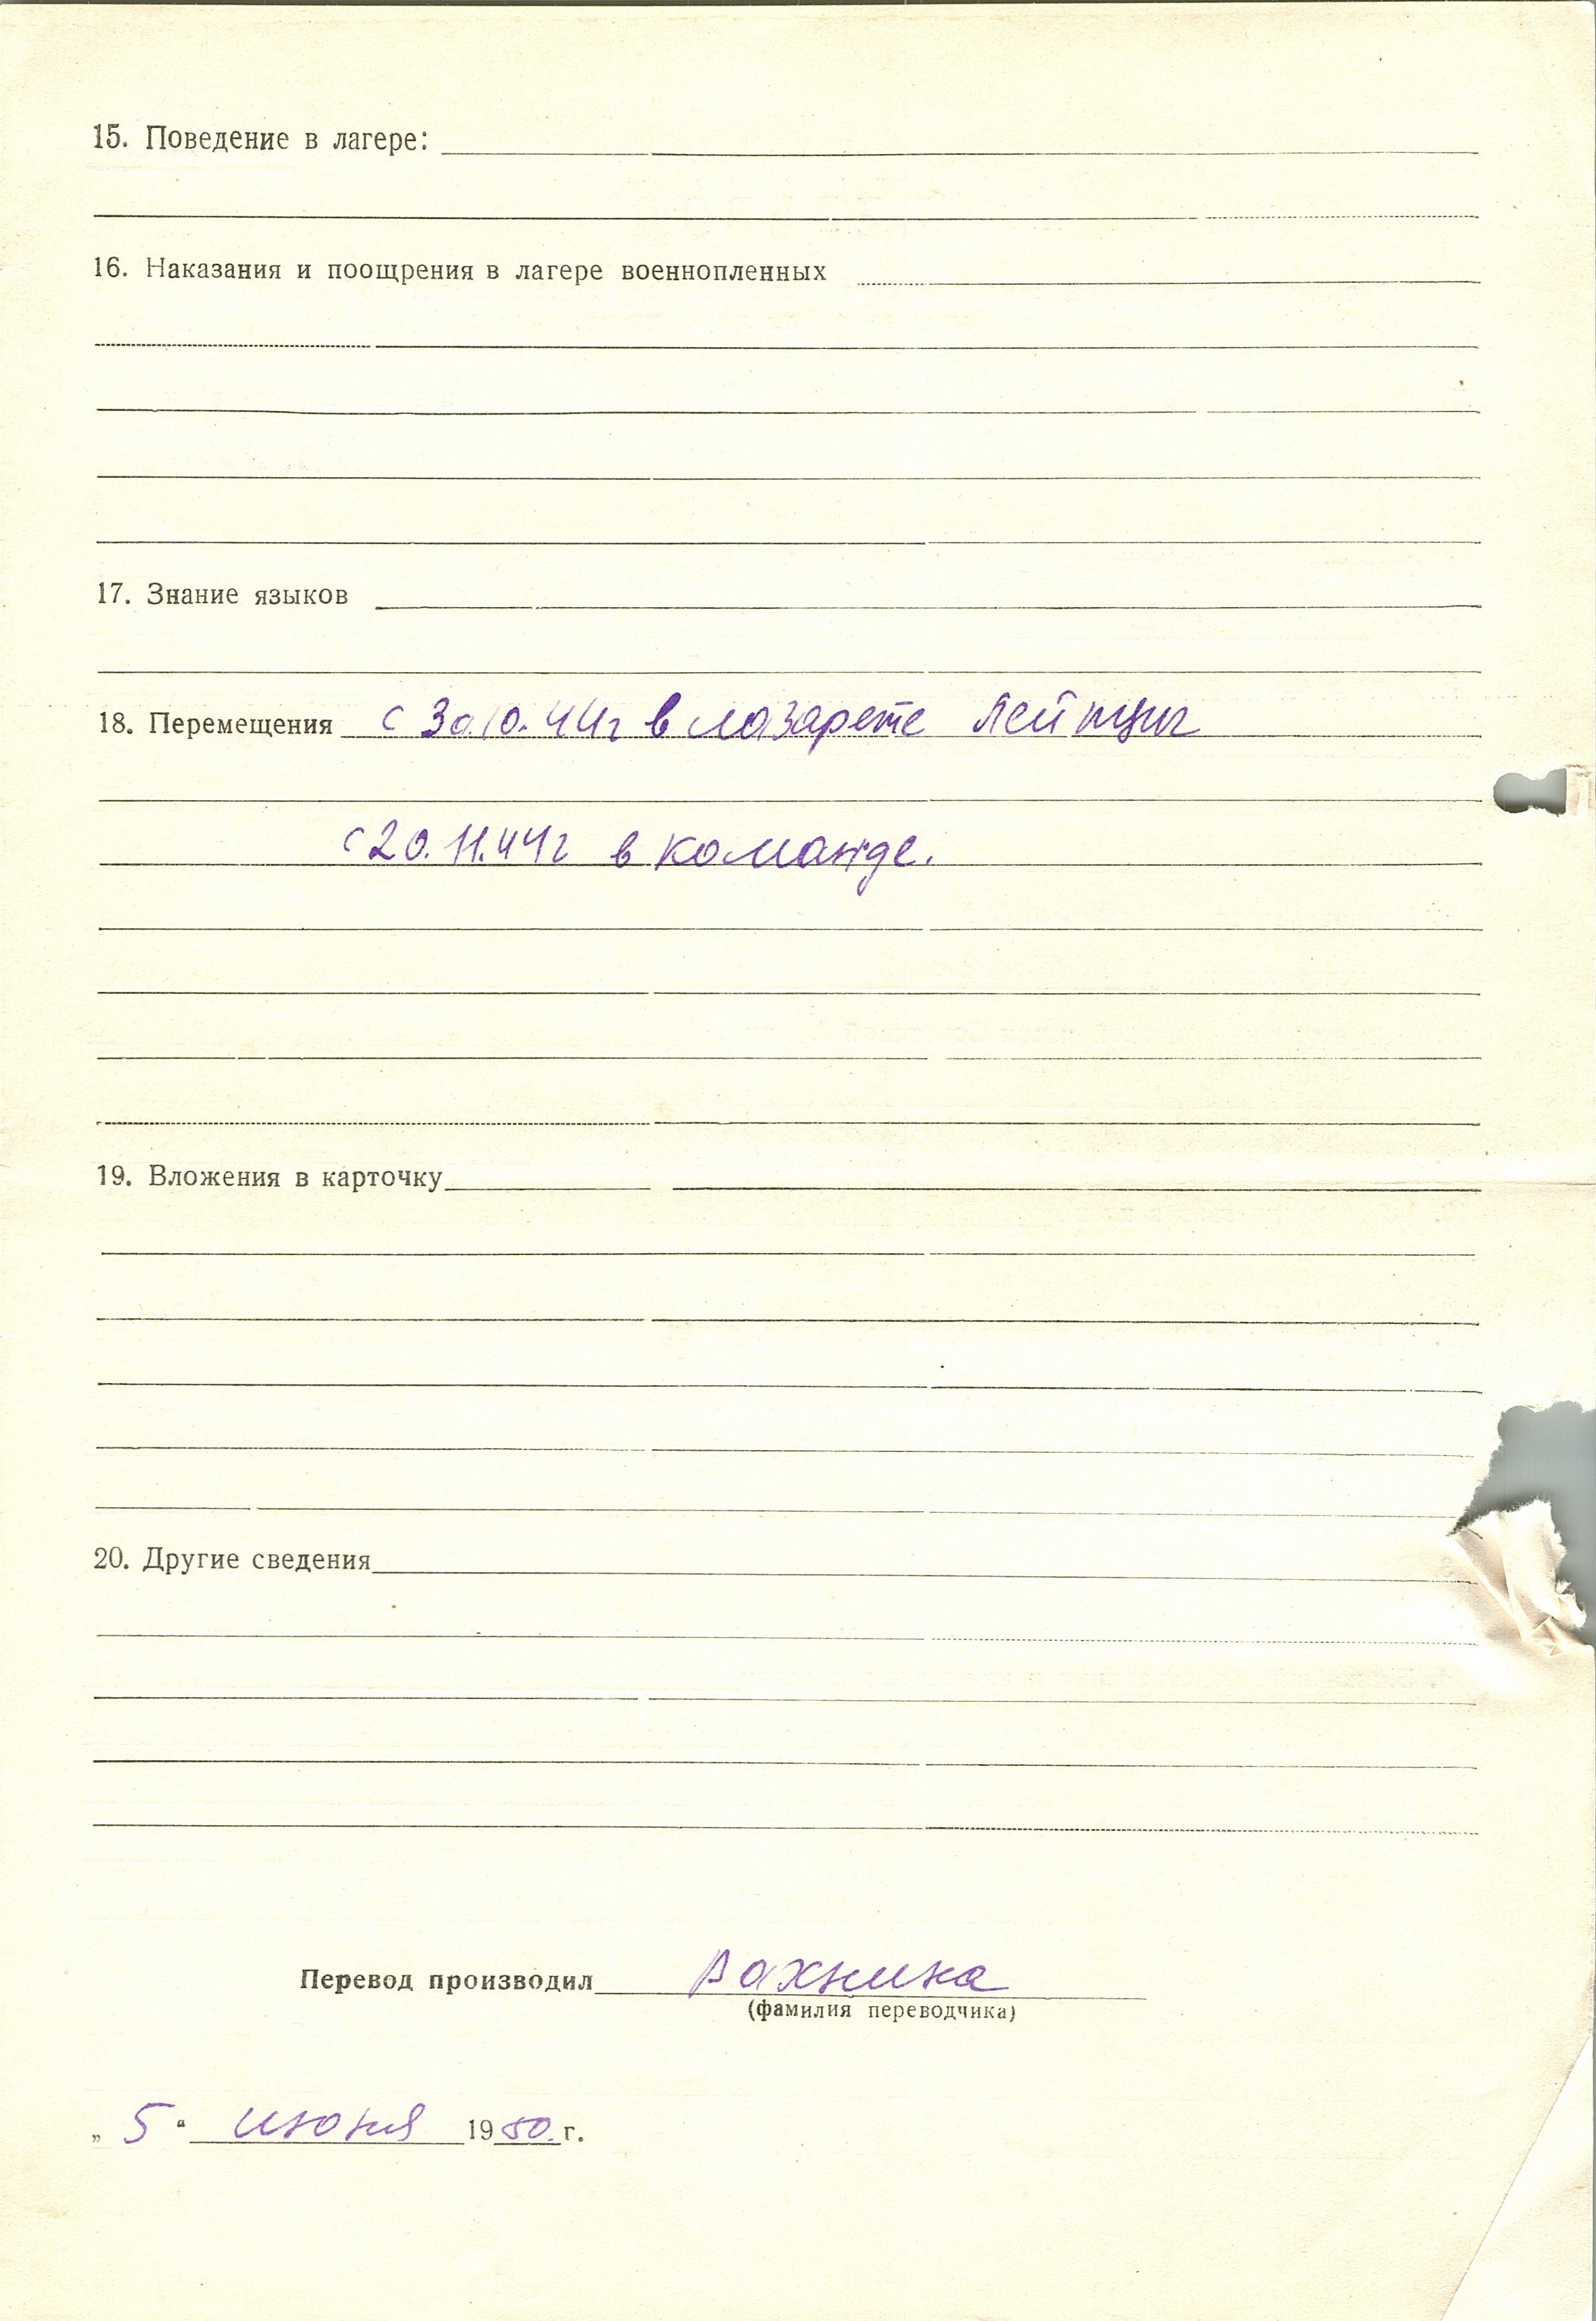 15. Поведение в лагере:
16. Наказания и поощрения в лагере военнопленных
17. Знание языков
18. Перемещения с 30.10.44г в лазарете Лейпциг
с 20.11.44г в команде.
19. Вложения в карточку
20. Другие сведения
Перевод производил Вахнина
(фамилия переводчика)
„ 5 “ июня 1950. г.